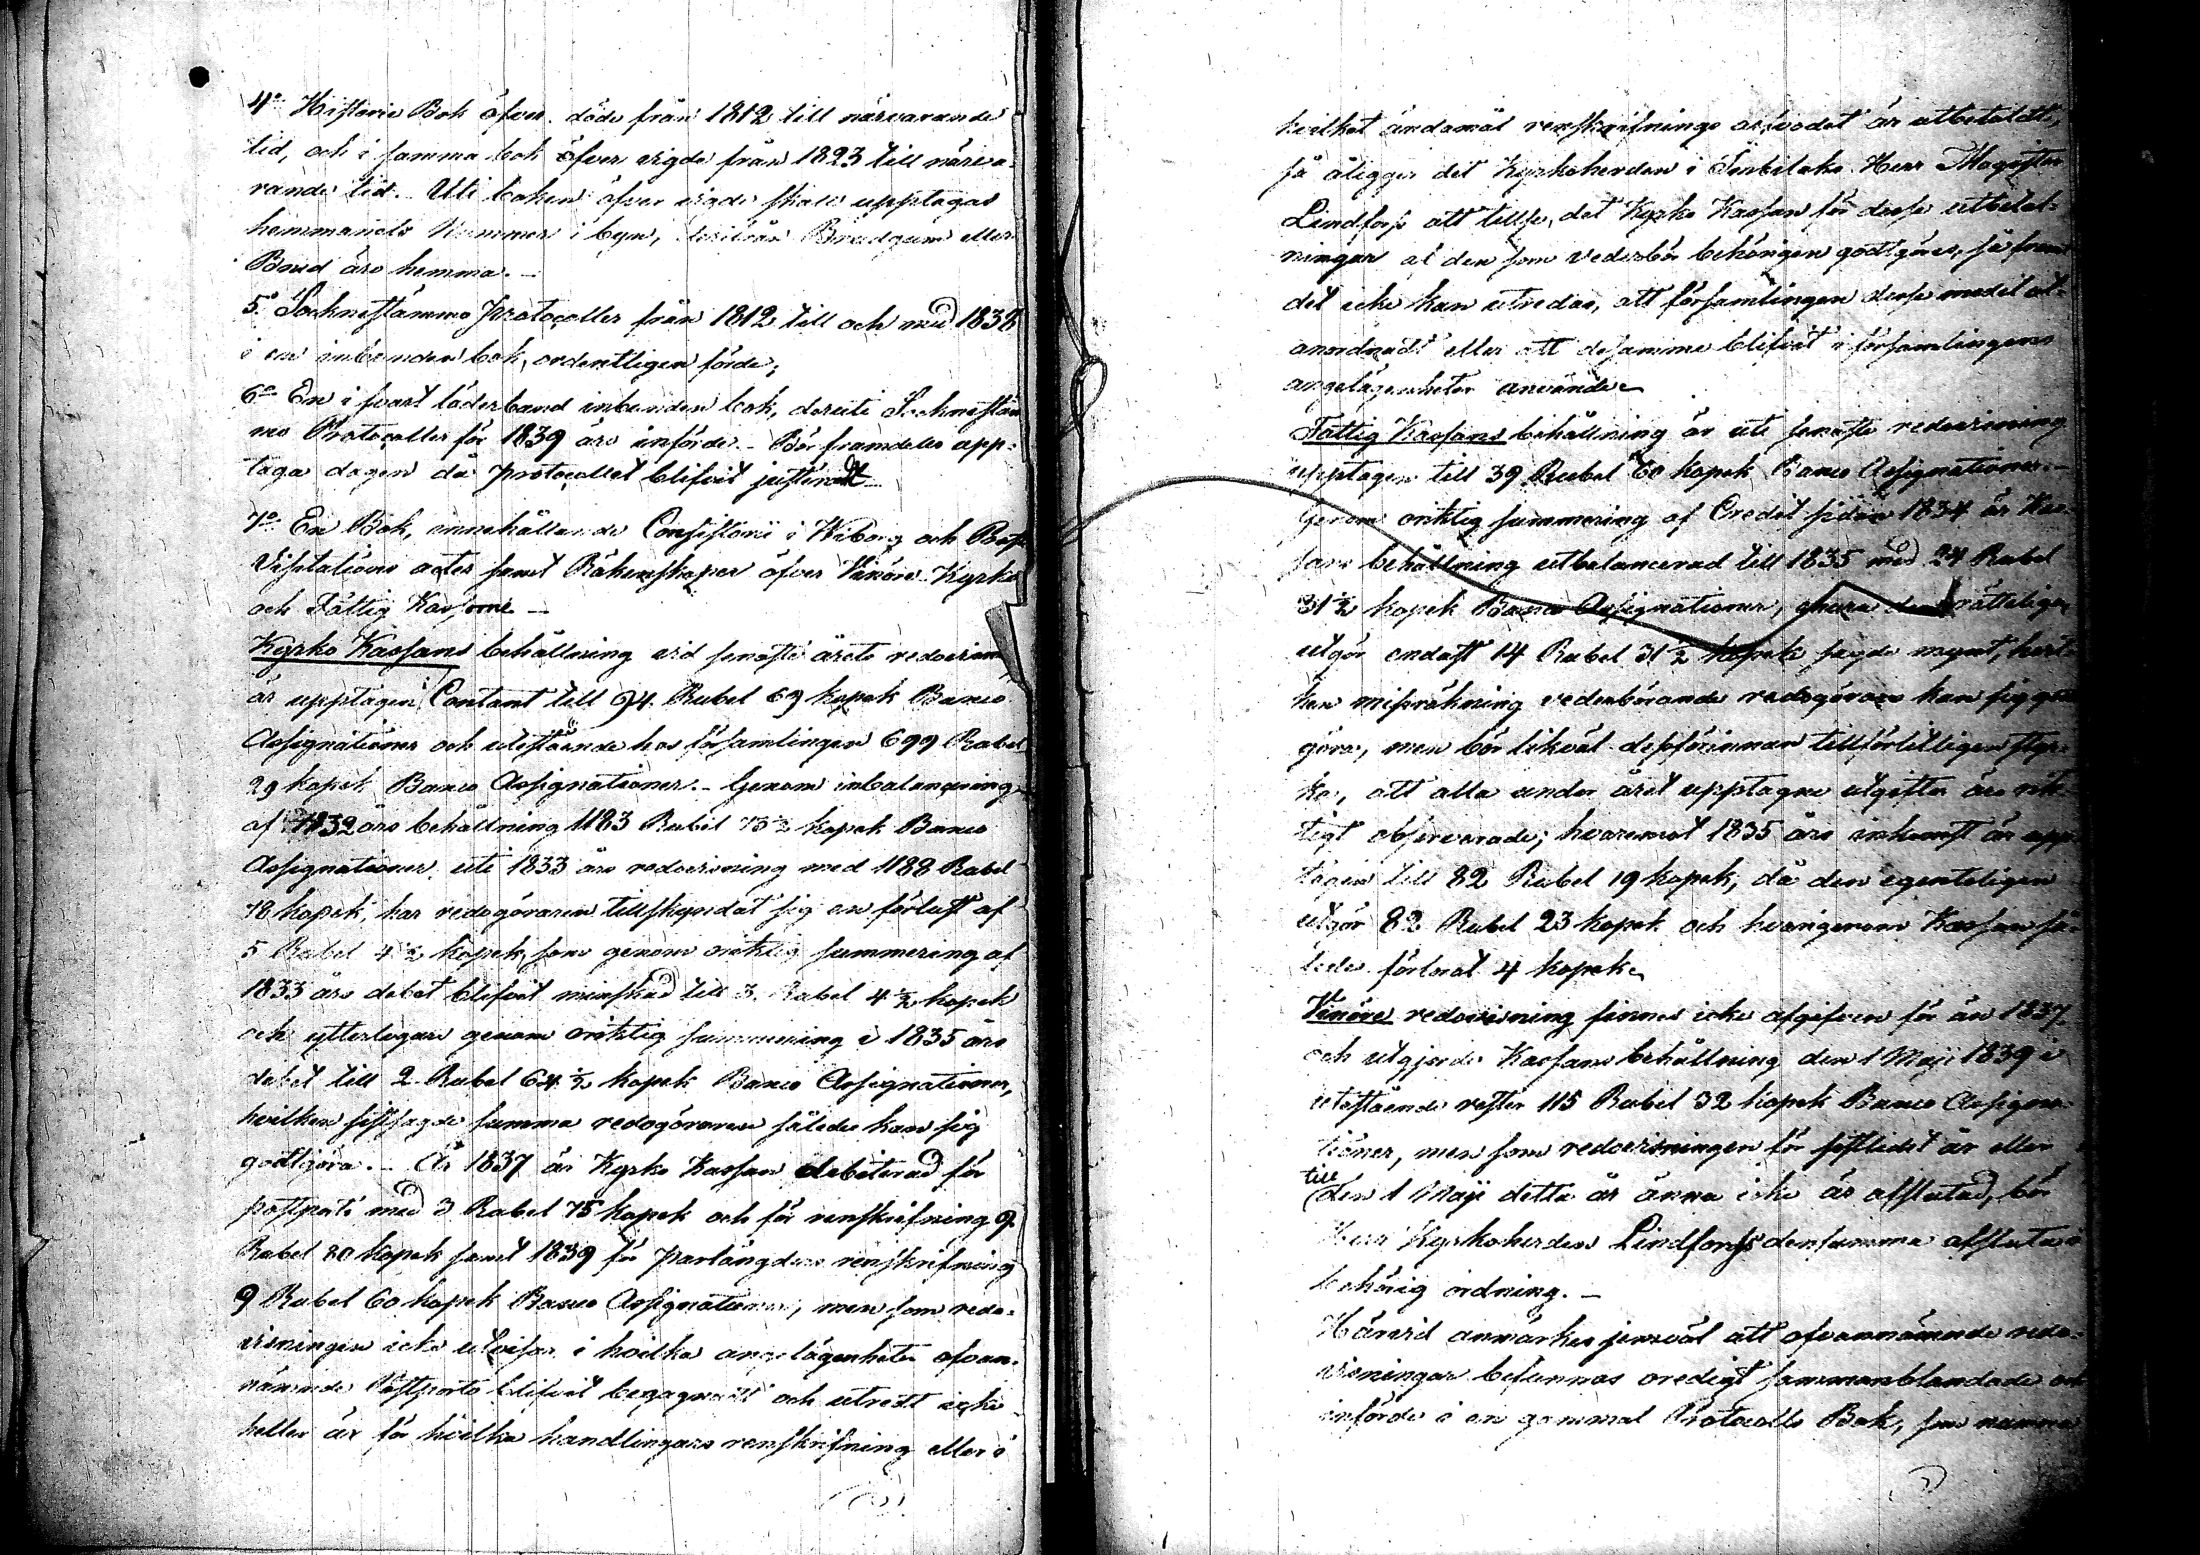 4o Historie Bok öfver döde från 1812 till närvarande
tid, och i samma bok öfver vigde från 1823 till närva-
rande tid. Uti boken öfver vigde skall upptagas
hemmanets Nummer i byn, Brudgum eller
Brud äro hemma. -
5o Socknestämmo Protocoller från 1812 till och med 1838
i en inbunden bok, ordentligen förde;
6o En i svart läderband inbunden bok, deruti Socknestäm
mo Protocoller för 1839 äro införde. - Bör framdeles upp-
taga dagen då protocollet blifvit justeradt
7o En Bok, innehållande Consistorii i Wiborg och
Visitations acter samt Räkenskaper öfver Vinöre Kyrko
och Fattig Kassorne -
Kyrko Kassans behållning vid senaste årets redovisn
är upptagen Contant till 94 Rubel 69 kopek Banco
Assignationer och utestående hos församlingen 699 Rubel
29 kopek Banco Assignationer. - Genom inbalancering
af 1832 års behållning 1183 Rubel 73 1/2 kopek Banco
Assignationer uti 1833 års redovisning med 1188 Rubel
78 kopek, har redogöraren tillskyndat sig en förlust af
5 Rubel 4 1/2 kopek, som genom oriktig summering af
1833 års debet blifvit minskad till 3 Rubel 4 1/2 kopek
och ytterligare genom oriktig summering i 1835 års
debet till 2 Rubel 64 1/2 kopek Banco Assignationer,
hvilken sistsagde summa redogöraren således kan sig
godtgöra. - År 1837 är Kyrko Kassan debiterad för
postporto med 3 Rubel 75 kopek och för renskrifning 9
Rubel 80 kopek samt 1839 för parlängders renskrifning
9 Rubel 60 kopek Banco Assignationer, men som redo-
visningen icke utvisar i hvilka angelägenheter ofvan-
nämnde Postporto blifvit begagnadt och utredt icke
heller är för hvilka handlingars renskrifning eller i
hvilket ändamål renskrifnings arfvodet är utbetaldt,
så åligger det Kyrkoherden i Herr Magister
Lindforss att tillse, det Kyrko Kassan för desse utbetal-
ningar af den som vederbör behörigen godtgöres, så fram
det icke kan utredas, att församlingen desse medel
anordnadt eller att desamma blifvit i församlingens
angelägenheter använde
Fattig Kassans behållning är uti senaste redovisning
upptagen till 39 Rubel 60 kopek Banco Assignationer. -
Genom oriktig summering af Credit sidan 1834 är Kas-
sans behållning utbalancerad till 1835 med 24 Rubel
31 1/2 kopek Banco Assignationer, ehuru den rätteligen
utgör endast 14 Rubel 31 1/2 kopek sagde mynt, hvil-
ken missräkning vederbörande redogörare kan sig godt
göra, men bör likväl dessförinnan tillförlitligen styr-
ka, att alla under året upptagne utgifter äro rik
tigt observerade; hvaremot 1835 års inkomst är upp
tagen till 82 Rubel 19 kopek, då den egenteligen
utgör 82 Rubel 23 kopek och hvarigenom Kassan så-
ledes förlorat 4 kopek.
Vinöre redovisning finnes icke afgifven för år 1837
och utgjorde Kassans behållning den 1 Maji 1839 i
utestående rester 115 Rubel 32 kopek Banco Assigna-
tioner, men som redovisningen för sistledit år eller
till den 1 Maji detta år ännu icke är afslutad, bör
Herr Kyrkoherden Lindforss densamma afsluta i
behörig ordning. -
Härvid anmärkes jemväl att ofvannämnde redo-
visningar befunnos oredigt sammanblandade och
införde i en gammal Protocolls Bok, som